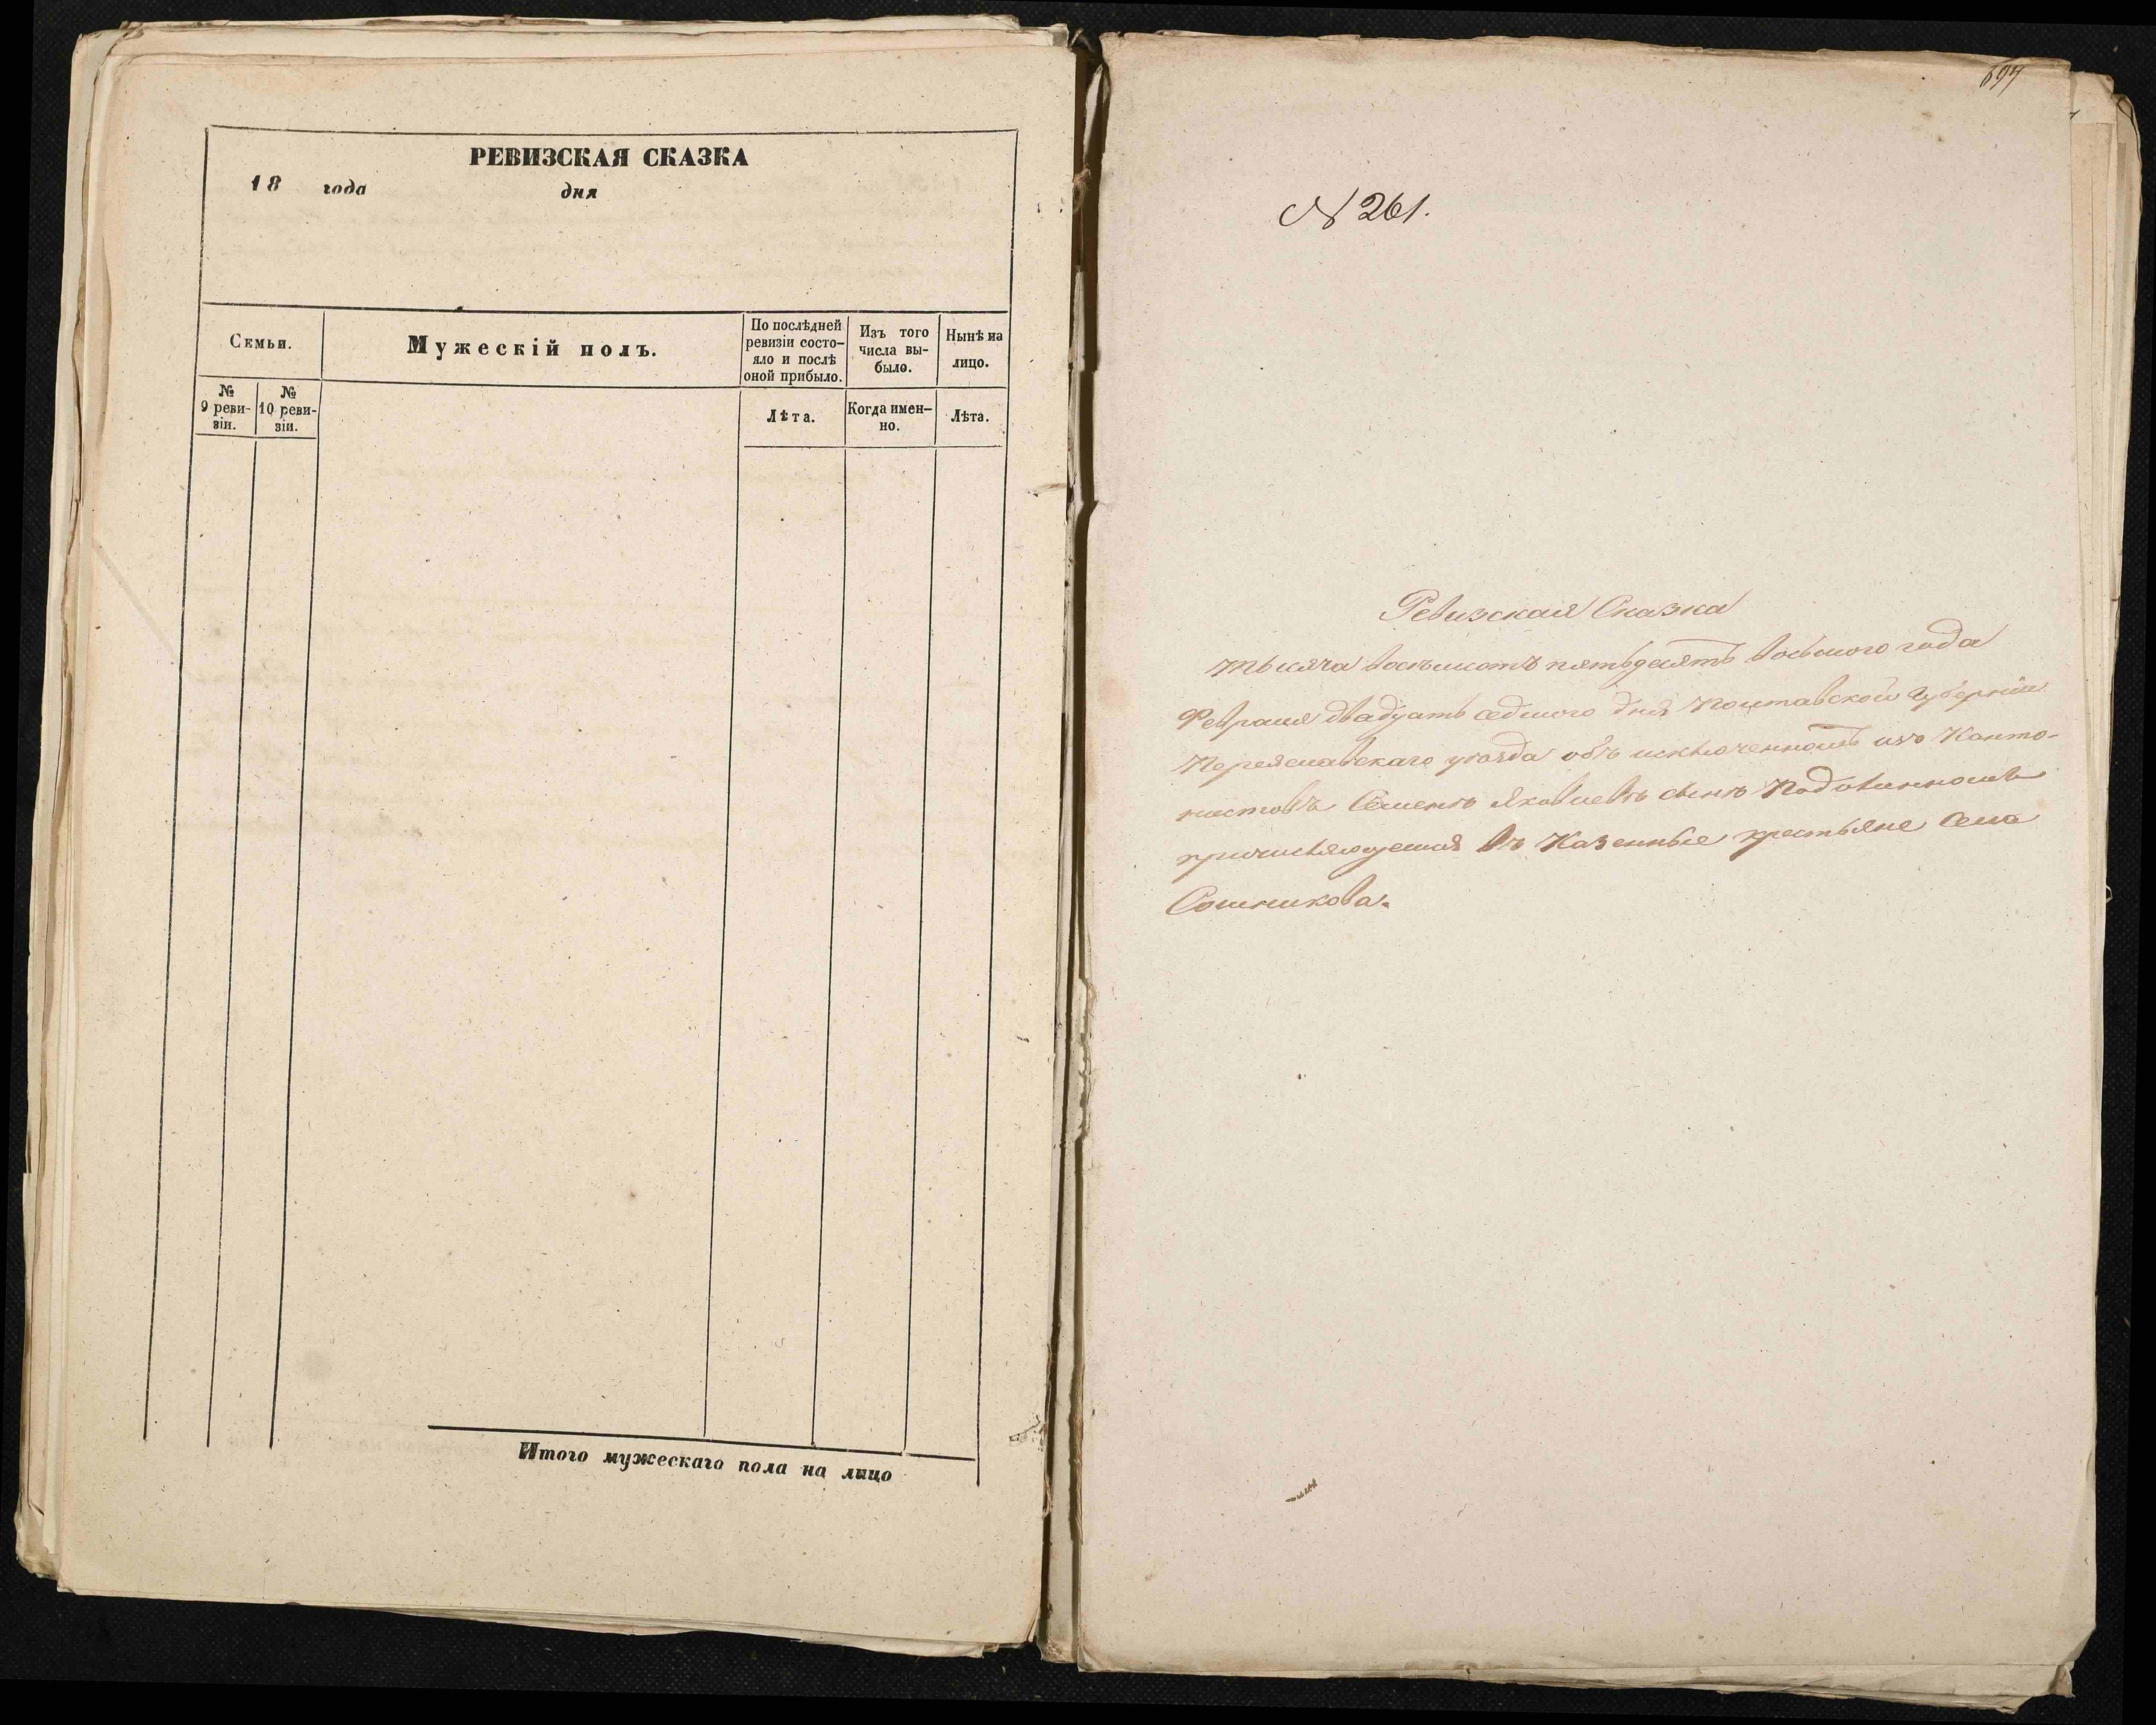 РЕВИЗСКАЯ СКАЗКА
18 года дня
Семьи.
Мужескій полъ.
По послѣдней
ревизіи состо-
яло и послѣ
оной прибыло.
Изъ того
числа вы-
было.
Нынѣ на
лицо.
№
9 реви-
зіи.
№
10 реви-
зіи.
Лѣта.
Когда имен-
но.
Лѣта.
Итого мужескаго пола на лицо
697
N 261.
Ревизская Сказка
тысяча восемьсотъ пятьдесятъ восьмого года
Февраля двадцать седьмого дня Полтавской губерніи
Переяславскаго уѣзда объ исключенномъ изъ Канто-
нистовъ Семенъ Яковлевъ сынъ
причисляющемся въ Казенные крестьяне Села
Сошникова.